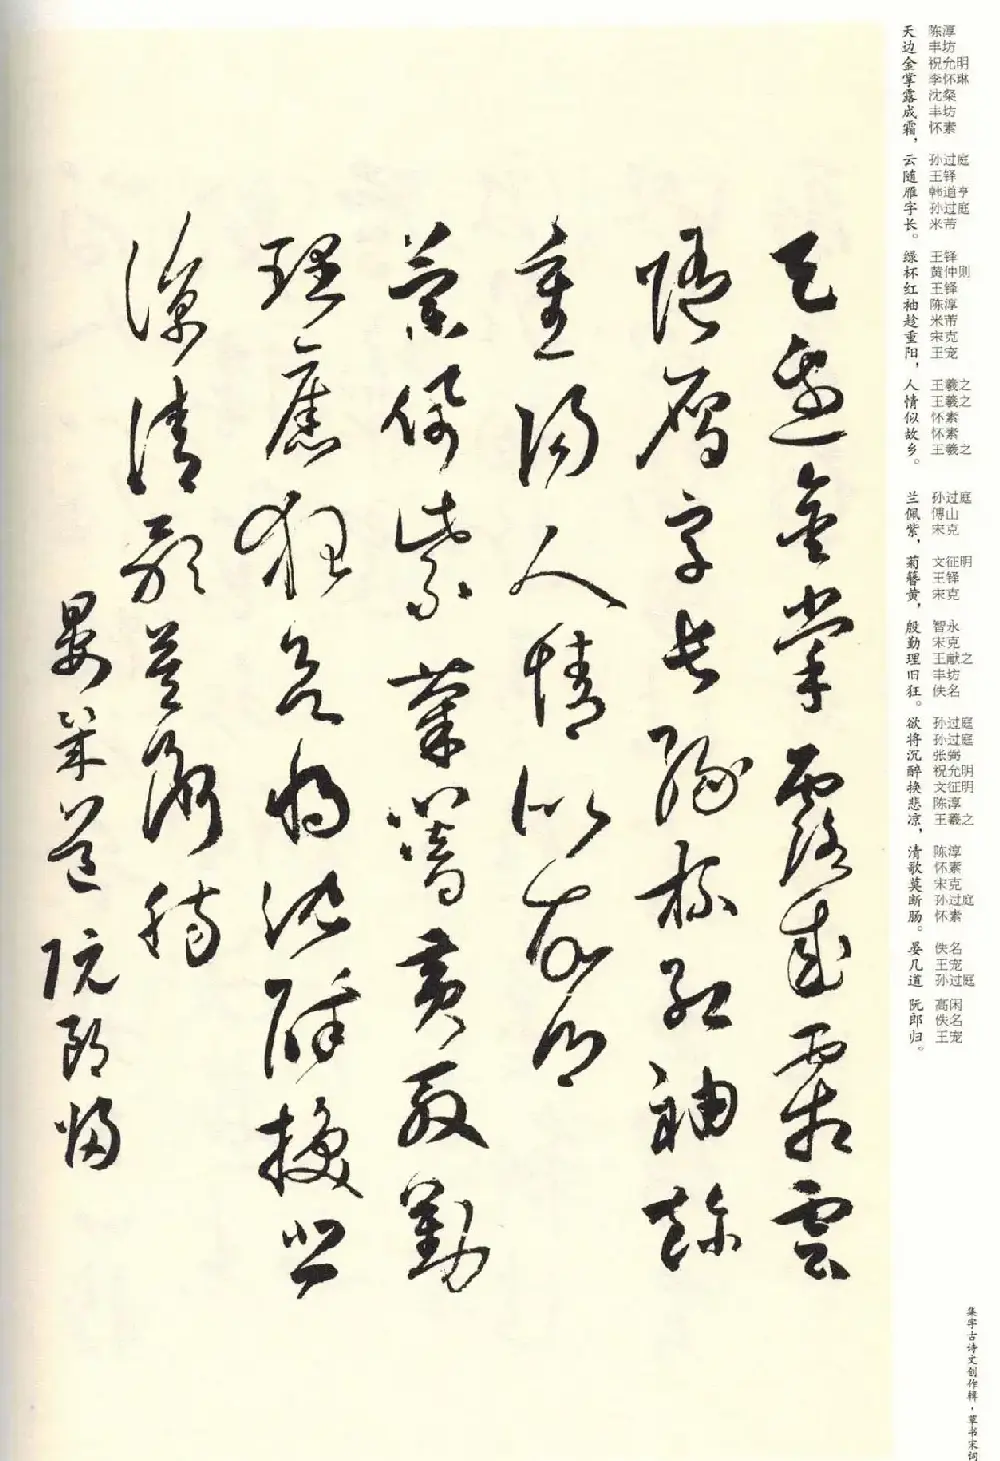 天邊金掌露成霜雲
隨雁字長綠杯紅袖趁
重陽人情似故鄉
蘭佩紫菊簪黃殷勤
理舊狂欲將沈醉換悲
涼清歌莫斷腸
晏幾道 阮郎歸
天 陈淳
边 丰坊
金 祝允明
掌 李怀琳
露 沈粲
成 丰坊
霜， 怀素
云 孙过庭
随 王铎
雁 韩道亨
字 孙过庭
长。 米芾
绿 王铎
杯 黄仲则
红 王铎
袖 陈淳
趁 米芾
重 宋克
阳， 王宠
人 王羲之
情 王羲之
似 怀素
故 怀素
乡。 王羲之
兰 孙过庭
佩 傅山
紫， 宋克
菊 文征明
簪 王铎
黄， 宋克
殷 智永
勤 宋克
理 王献之
旧 丰坊
狂。 佚名
欲 孙过庭
将 孙过庭
沉 张弼
醉 祝允明
换 文征明
悲 陈淳
凉， 王羲之
清 陈淳
歌 怀素
莫 宋克
断 孙过庭
肠。 怀素
晏 佚名
几 王宠
道 孙过庭
阮 高闲
郎 佚名
归。 王宠
集字古诗文创作辑·草书宋词